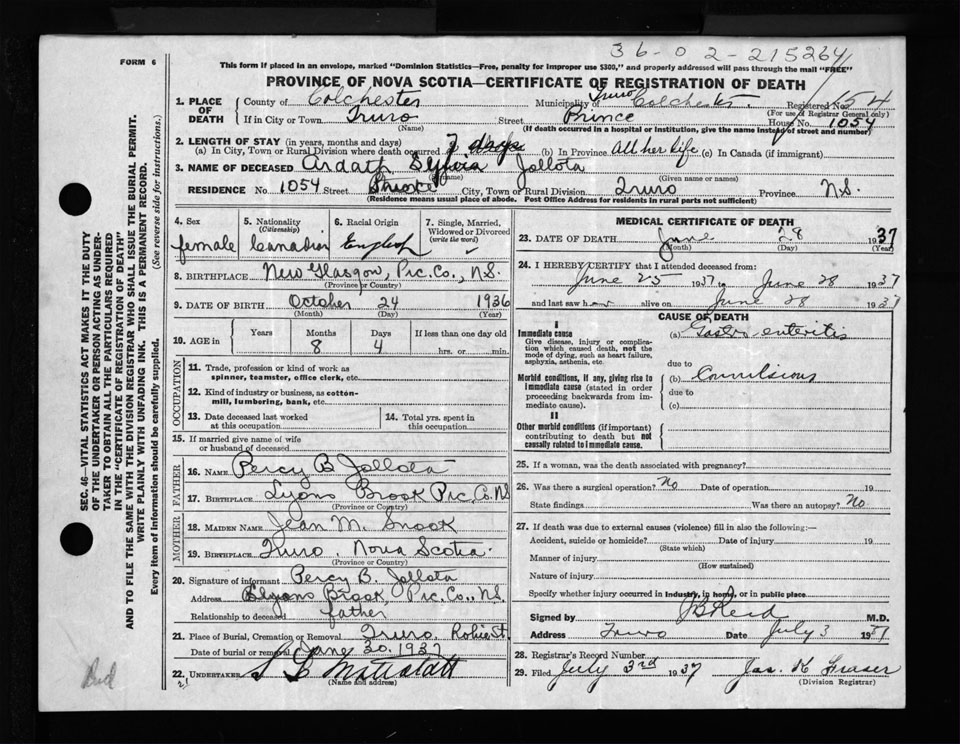 36-02-215264
FORM 6
This form if placed in an envelope, marked "Dominion Statistics—Free, penalty for improper use $300," and properly addressed will pass through the mail "FREE"
PROVINCE OF NOVA SCOTIA—CERTIFICATE OF REGISTRATION OF DEATH
1. PLACE OF DEATH County of Colchester Municipality of Truro Colchester. Registered No. 154
(For use of Registrar General only)
If in City or Town Truro (Name) Street Prince House No. 1054
(If death occurred in a hospital or institution, give the name instead of street and number)
2. LENGTH OF STAY (in years, months and days)
(a) In City, Town or Rural Division where death occurred 7 days (b) In Province All her life (c) In Canada (if immigrant)
3. NAME OF DECEASED Ardath Sylvia Jollota
(Given name or names)
RESIDENCE No. 1054 Street City, Town or Rural Division Truro Province N.S.
(Residence means usual place of abode. Post Office Address for residents in rural parts not sufficient)
4. Sex female
5. Nationality (Citizenship) Canadian
6. Racial Origin English
7. Single, Married, Widowed or Divorced (write the word)
8. BIRTHPLACE New Glasgow, Pic. Co., N.S.
(Province or Country)
9. DATE OF BIRTH October 24 1936
(Month) (Day) (Year)
10. AGE in Years Months 8 Days 4 If less than one day old hrs. or min.
OCCUPATION
11. Trade, profession or kind of work as spinner, teamster, office clerk, etc.
12. Kind of industry or business, as cotton-mill, lumbering, bank, etc.
13. Date deceased last worked at this occupation
14. Total yrs. spent in this occupation
15. If married give name of wife or husband of deceased
FATHER
16. NAME Percy B Jollota
17. BIRTHPLACE Lyons Brook Pic. Co. N.S
(Province or Country)
MOTHER
18. MAIDEN NAME Jean M. Snook
19. BIRTHPLACE Truro, Nova Scotia.
(Province or Country)
20. Signature of informant Percy B. Jollota
Address Lyons Brook Pic. Co., N.S.
Relationship to deceased father
21. Place of Burial, Cremation or Removal Truro, Robie St.
Date of burial or removal June 30. 1937
22. UNDERTAKER
(Name and address)
MEDICAL CERTIFICATE OF DEATH
23. DATE OF DEATH June 28 1937
(Month) (Day) (Year)
24. I HEREBY CERTIFY that I attended deceased from:
June 25 1937 to June 28 1937
and last saw her alive on June 28 1937
CAUSE OF DEATH
I
Immediate cause
Give disease, injury or complication which caused death, not the mode of dying, such as heart failure, asphyxia, asthenia, etc.
(a) Gastro enteritis
due to
Morbid conditions, if any, giving rise to immediate cause (stated in order proceeding backwards from immediate cause).
(b) Convulsions
due to
(c)
II
Other morbid conditions (if important) contributing to death but not causally related to immediate cause.
25. If a woman, was the death associated with pregnancy?
26. Was there surgical operation? No Date of operation 19
State findings Was there an autopsy? No
27. If death was due to external causes (violence) fill in also the following:—
Accident, suicide or homicide? Date of injury 19
(State which)
Manner of injury
(How sustained)
Nature of injury
Specify whether injury occurred in industry, in home, or in public place
Signed by Reid M.D.
Address Truro Date July 3 1937
28. Registrar's Record Number
29. Filed July 3rd 1937 Jas. K Fraser
(Division Registrar)
SEC. 46—VITAL STATISTICS ACT MAKES IT THE DUTY
OF THE UNDERTAKER OR PERSON ACTING AS UNDER-
TAKER TO OBTAIN ALL THE PARTICULARS REQUIRED
IN THE "CERTIFICATE OF REGISTRATION OF DEATH"
AND TO FILE THE SAME WITH THE DIVISION REGISTRAR WHO SHALL ISSUE THE BURIAL PERMIT.
WRITE PLAINLY WITH UNFADING INK. THIS IS A PERMANENT RECORD.
Every item of Information should be carefully supplied. (See reverse side for instructions.)